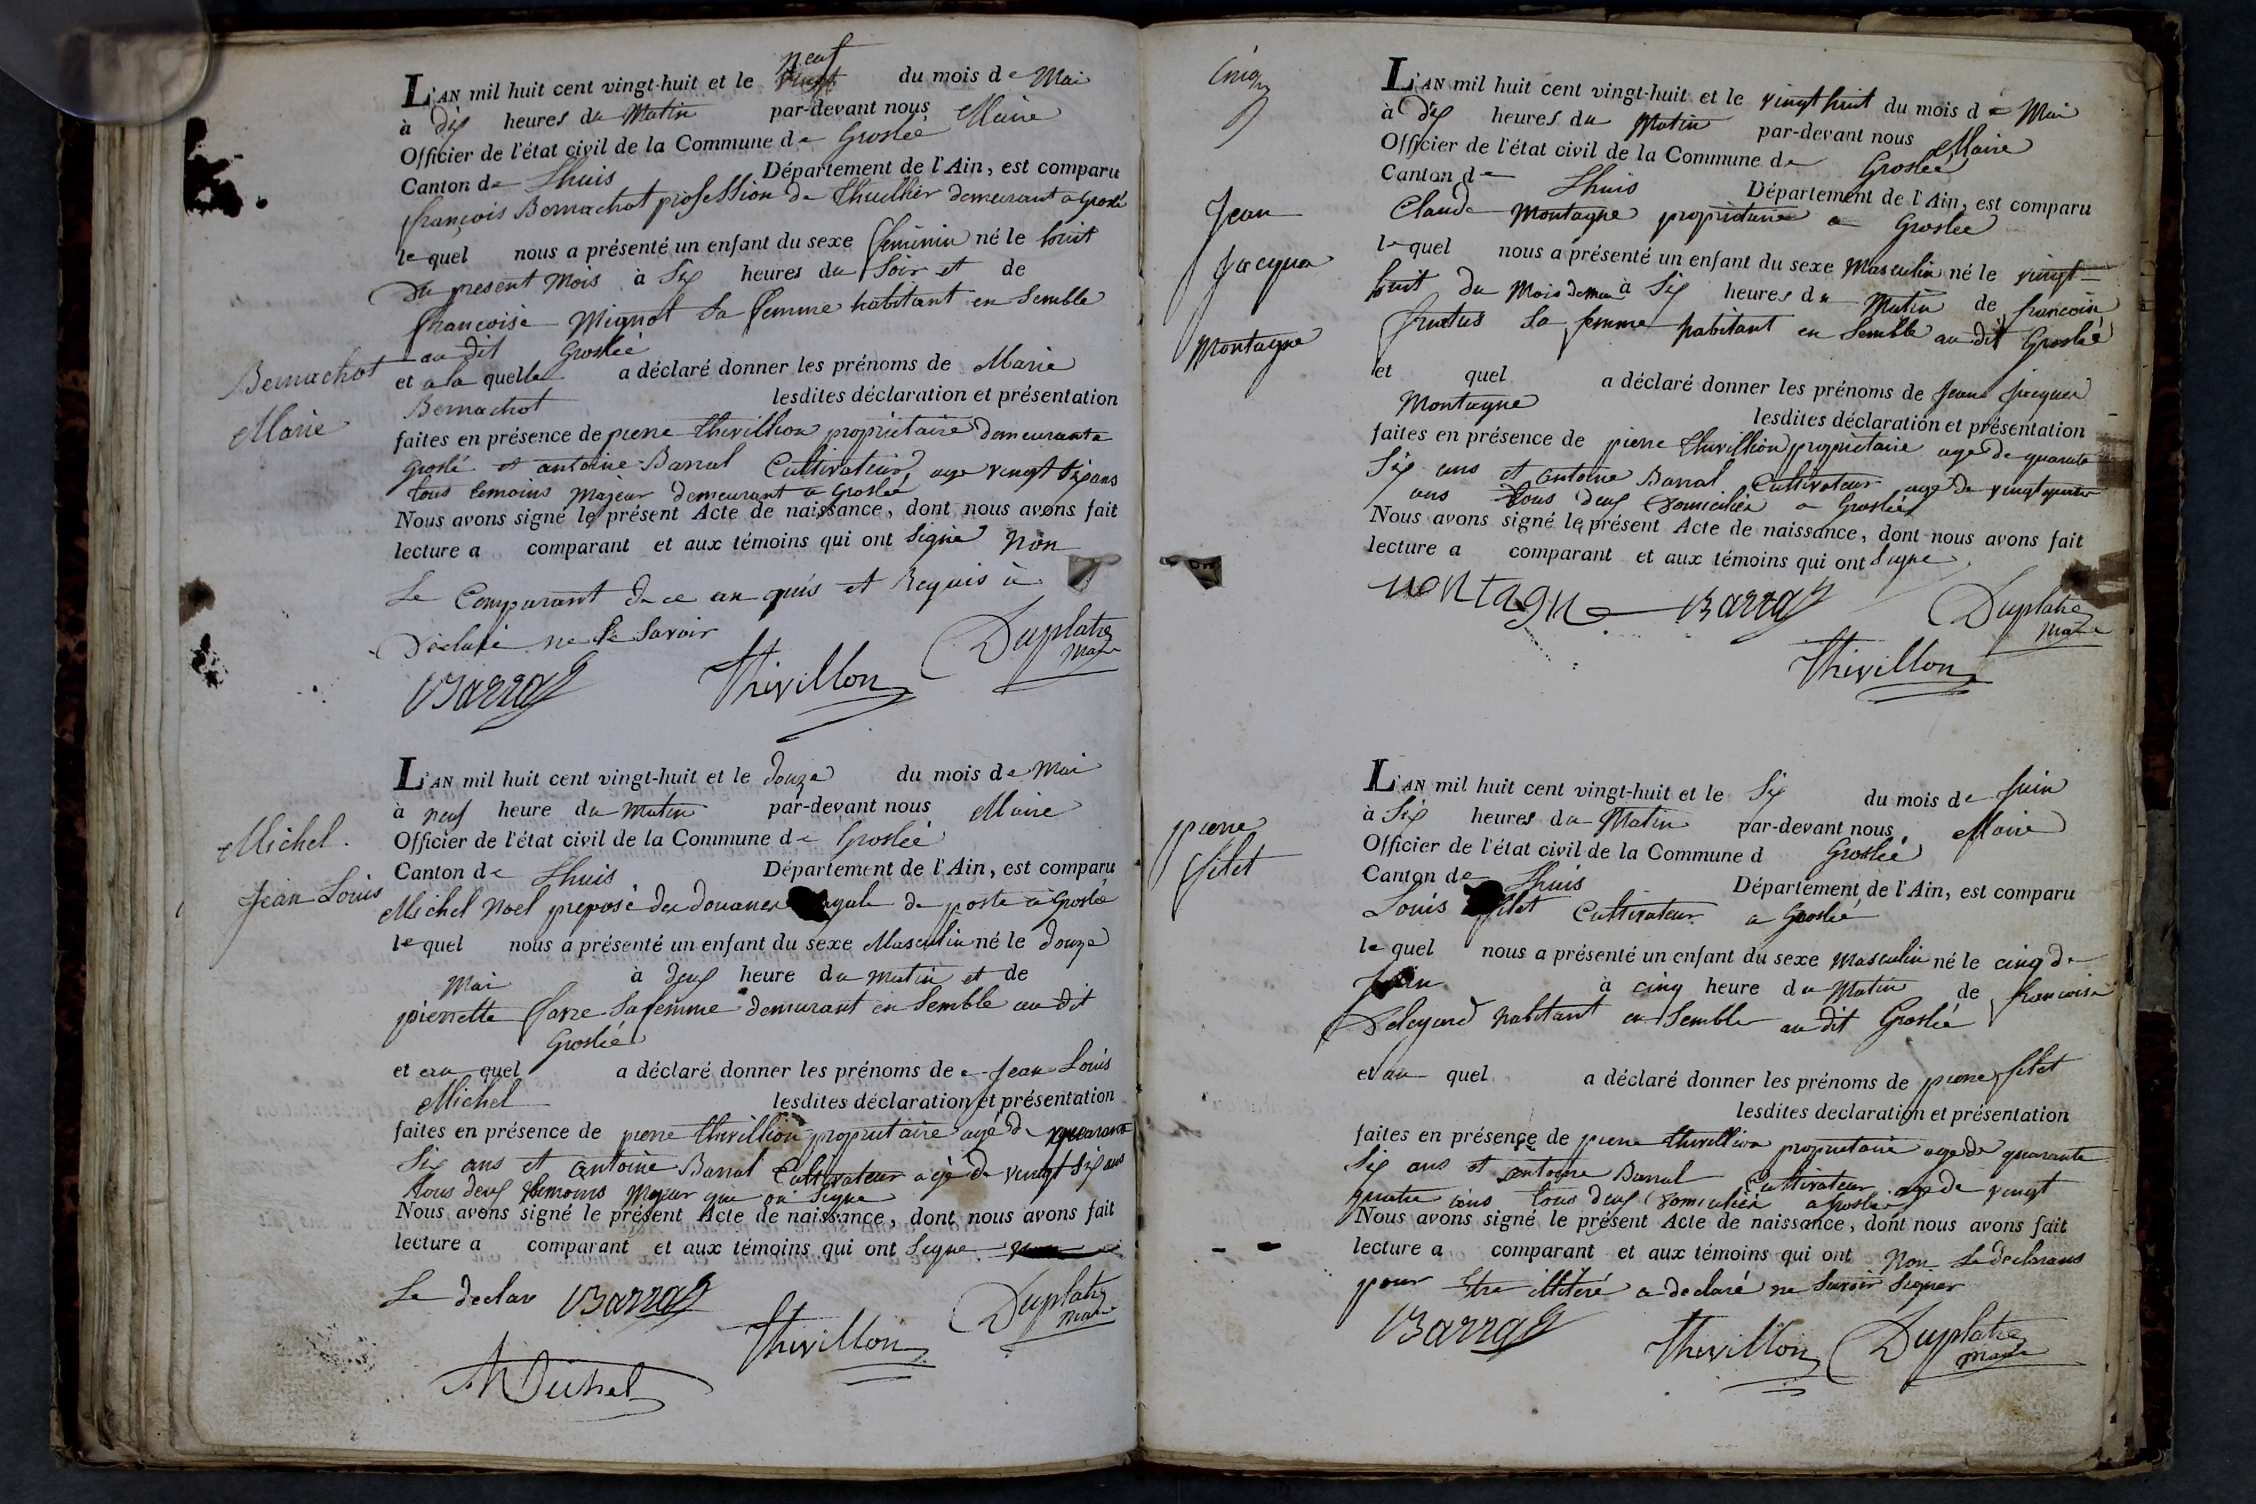 neuf
L'AN mil huit cent vingt-huit et le du mois de Mai
à dix heures du Matin par-devant nous Maire
Officier de l'état civil de la Commune de Groslée
Canton de Lhuis Département de l'Ain, est comparu
françois Bernachot profession de thuillier demeurant a Groslé
lequel nous a présenté un enfant du sexe feminin né le huit
du present Mois à Six heures du Soir et de
françoise Mignot Sa femme habitant en Semble
au dit Groslée
Bernachot
Marie
et a la quelle a déclaré donner les prénoms de Marie
Bernachot lesdites déclaration et présentation
faites en présence de pierre thivillion propriétaire demeurant a
Groslé et antoine Barral Cultivateur age vingt Six ans
tous temoins Majeur demeurant a Groslée
Nous avons signé le présent Acte de naissance, dont nous avons fait
lecture a comparant et aux témoins qui ont Signé Non
Le Comparant de ce en quis et Requis à
déclaré ne le Savoir
Barral Thivillon Duplatre
Maire
L'AN mil huit cent vingt-huit et le douze du mois de Mai
à neuf heure du Matin par-devant nous Maire
Officier de l'état civil de la Commune de Groslée
Canton de Lhuis Département de l'Ain, est comparu
Michel
Jean Louis
Michel Noel preposé des douanes de poste à Groslée
lequel nous a présenté un enfant du sexe Masculin né le douze
Mai à deux heure du Matin et de
pierrette favre Sa femme demeurant en Semble au dit
Groslée
et au quel a déclaré donner les prénoms de Jean Louis
Michel lesdites déclaration et présentation
faites en présence de pierre thivillion propriétaire agé de quarante
Six ans et antoine Barral Cultivateur agé de vingt Six ans
tous deux temoins Majeur que on Signe
Nous avons signé le présent Acte de naissance, dont nous avons fait
lecture a comparant et aux témoins qui ont Signe
Le declar Barral Thivillon Duplatre
Maire
Michel
Cinq
L'AN mil huit cent vingt-huit et le vingt huit du mois de Mai
à dix heures du Matin par-devant nous Maire
Officier de l'état civil de la Commune de Groslée
Canton de Lhuis Département de l'Ain, est comparu
Jean
Jacque
Montagne
Claude Montagne propriétaire a Groslée
lequel nous a présenté un enfant du sexe Masculin né le vingt
huit du Mois de mai à Six heures du Matin de francoise
Sa femme habitant en Semble au dit Groslée
et quel a déclaré donner les prénoms de Jean Jacques
Montagne lesdites déclaration et présentation
faites en présence de pierre thivillion propriétaire age de quarante
Six ans et antoine Barral Cultivateur age de vingt quatre
ans tous deux domiciliés a Groslée
Nous avons signé le présent Acte de naissance, dont nous avons fait
lecture a comparant et aux témoins qui ont Signe
montagne Barral Duplatre
Maire
Thivillon
L'AN mil huit cent vingt-huit et le Six du mois de Juin
à Six heures du Matin par-devant nous Maire
Officier de l'état civil de la Commune d Groslée
Canton de Lhuis Département de l'Ain, est comparu
pierre
filet
Louis filet Cultivateur a Groslée
lequel nous a présenté un enfant du sexe Masculin né le cinq de
Juin à cinq heure du Matin de francoise
habitant en Semble au dit Groslée
et au quel a déclaré donner les prénoms de pierre filet
lesdites declaration et présentation
faites en présence de pierre thivillion propriétaire age de quarante
Six ans et antoine Barral Cultivateur age de vingt
quatre ans tous deux domiciliés a Groslée
Nous avons signé le présent Acte de naissance, dont nous avons fait
lecture a comparant et aux témoins qui ont Non Le declarans
pour Etre illitéré a declaré ne Savoir Signer
Barral Thivillon Duplatre
Maire